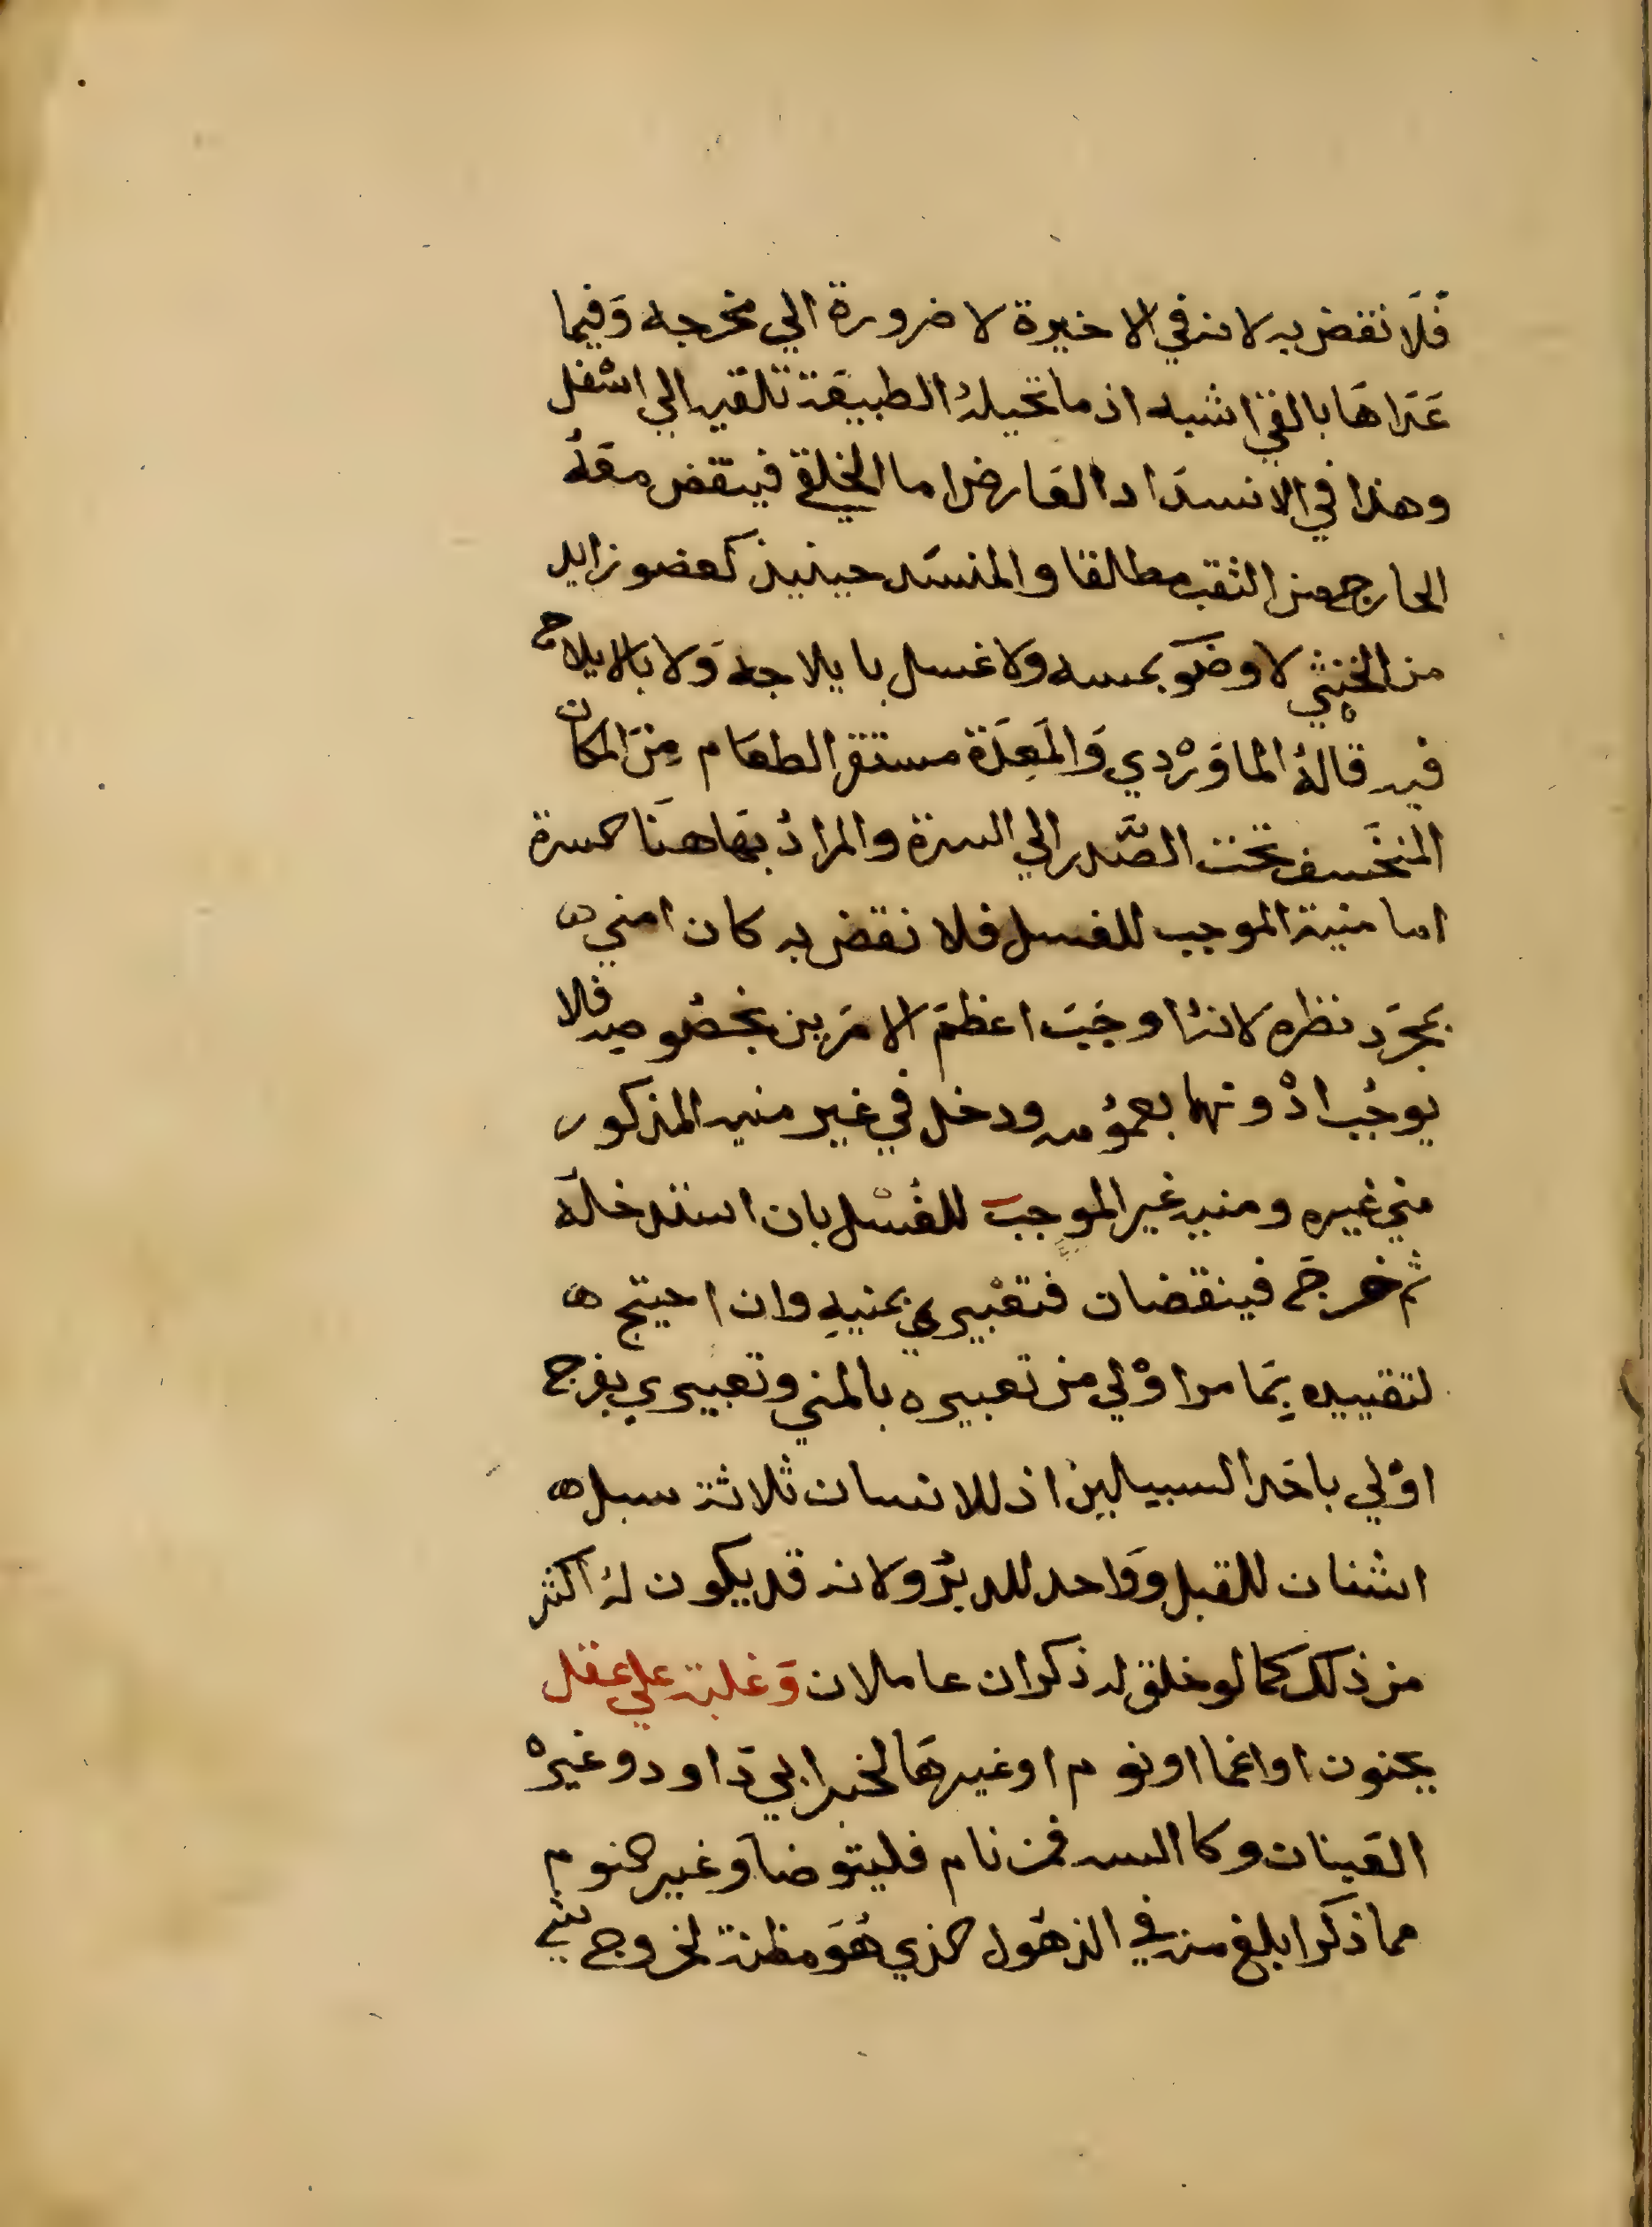 فَلَا نقض به لانه في الاخيرة لا ضرورة الي مخرجه وَفيما
عَدَاهَا بالقئ اشبه اذ ما تحيلهُ الطبيعَة تلقيه الي اسْفل
وهذا في الانسدَاد العَارض اما الخلقي فينقض معَهُ
الخارج من الثقب مطلقا والمنسَد حينيذ كعضو زايد
من الخنثي لا وضوَ بمسه ولا غسل بايلاجه وَلا بالايلاج
فيه قالهُ الماوَرْدي وَالمَعِدَة مستقر الطعَام مِنَ المكان
المنخَسف تحت الصَّدر الي السرة والمرادُ بهَا هنَا السرة
اما منيه الموجب للغسل فلا نقض به كان امني ه
بمجرَد نظره لانهُ اوجَبَ اعظمَ الامرَين بخصُوصه فلا
يوجُب ادْونهما بعمُومه ودخل في غير منيه المذكور
مني غيره ومنيه غير الموجبَ للغُسْل بان استدخله
ثم خرجَ فينقضان فتعْبيري بمنيهِ وان احتيج ه
لتقييده بِمَا مر اوْلي من تعبيره بالمني وتعبيري بفرج
اوْلي باحَد السبيلين اذ للانسان ثلاثة سبل ه
اثنان للقبل وَوَاحد للدبُر ولانه قد يكون لهُ اكثر
من ذلك كما لو خلق له ذكران عاملان وَغلبة علي عقل
بجنون او اغما او نوم او غيرهَا لخبر ابي دَاود وغيرهْ
العَينان وكا السه فمن نام فليتوضا وَغير النوم
مما ذكر ابلغ منه في الذهُول الذي هُوَ مظنة لخروج شي